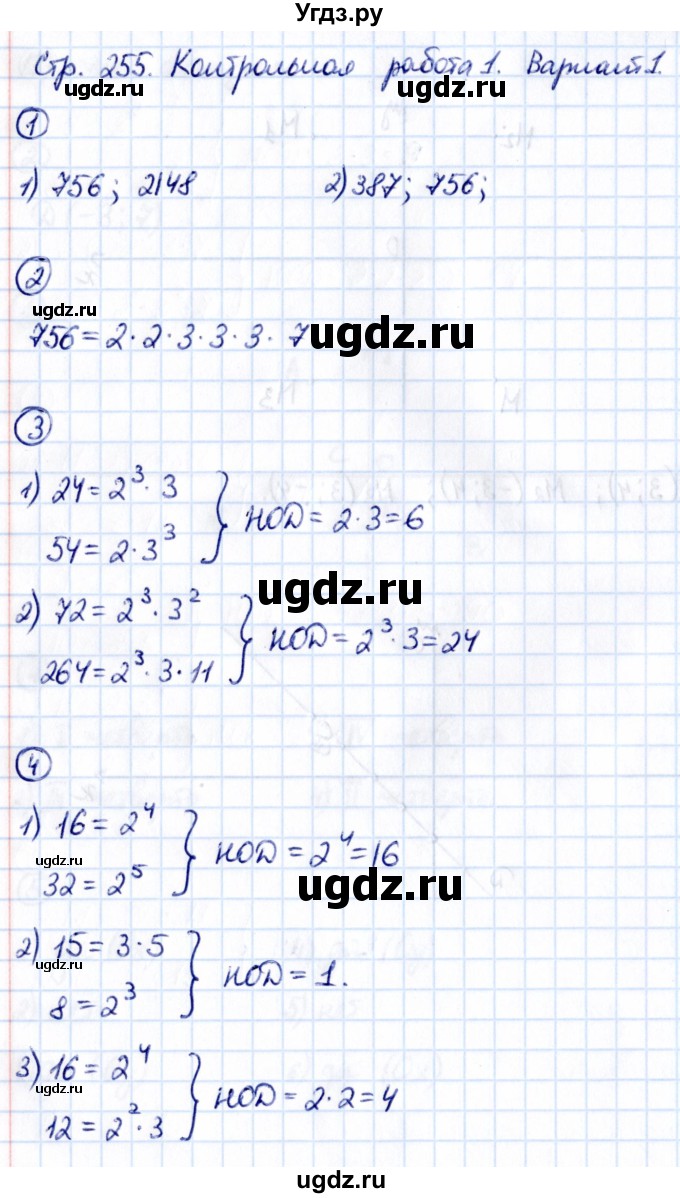 Угдз.ру
Стр. 255. Контрольная работа 1. Вариант 1.
ugdz.ru
ugdz.ru
1
1) 756; 2148 2) 387; 756;
2
ugdz.ru
756 = 2 · 2 · 3 · 3 · 3 · 7
ugdz.ru
3
1) 24 = 2³ · 3
54 = 2 · 3³
НОД = 2 · 3 = 6
ugdz.ru
2) 72 = 2³ · 3²
264 = 2³ · 3 · 11
НОД = 2³ · 3 = 24
ugdz.ru
4
1) 16 = 2⁴
32 = 2⁵
НОД = 2⁴ = 16
ugdz.ru
ugdz.ru
2) 15 = 3 · 5
8 = 2³
НОД = 1.
ugdz.ru
3) 16 = 2⁴
12 = 2² · 3
НОД = 2 · 2 = 4
ugdz.ru
ugdz.ru